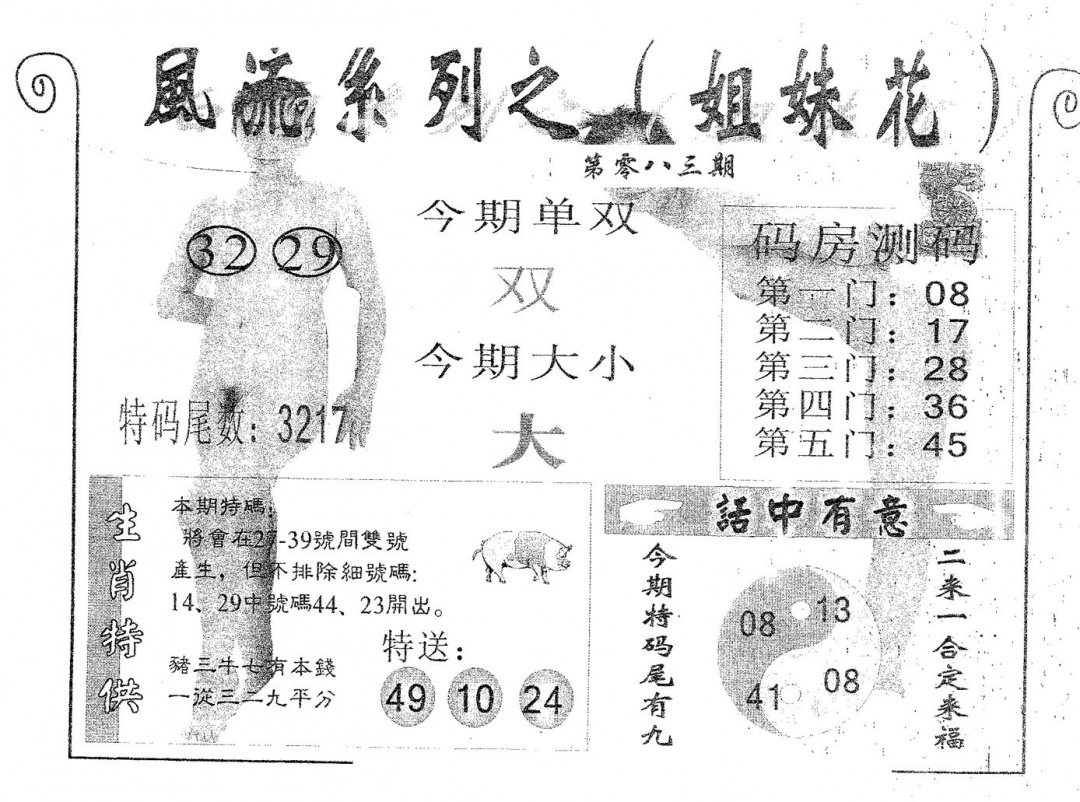 風流系列之（姐妹花）
第零八三期
32 29
今期单双
双
今期大小
大
特码尾数：3217
码房测码
第一门：08
第二门：17
第三门：28
第四门：36
第五门：45
生肖特供
本期特碼：
將會在27-39號間雙號
產生，但不排除細號碼：
14、29中號碼44、23開出。
豬三牛七有本錢
一從三二九平分
特送：
49 10 24
話中有意
今期特码尾有九
08 13
41 08
二来一合定来福